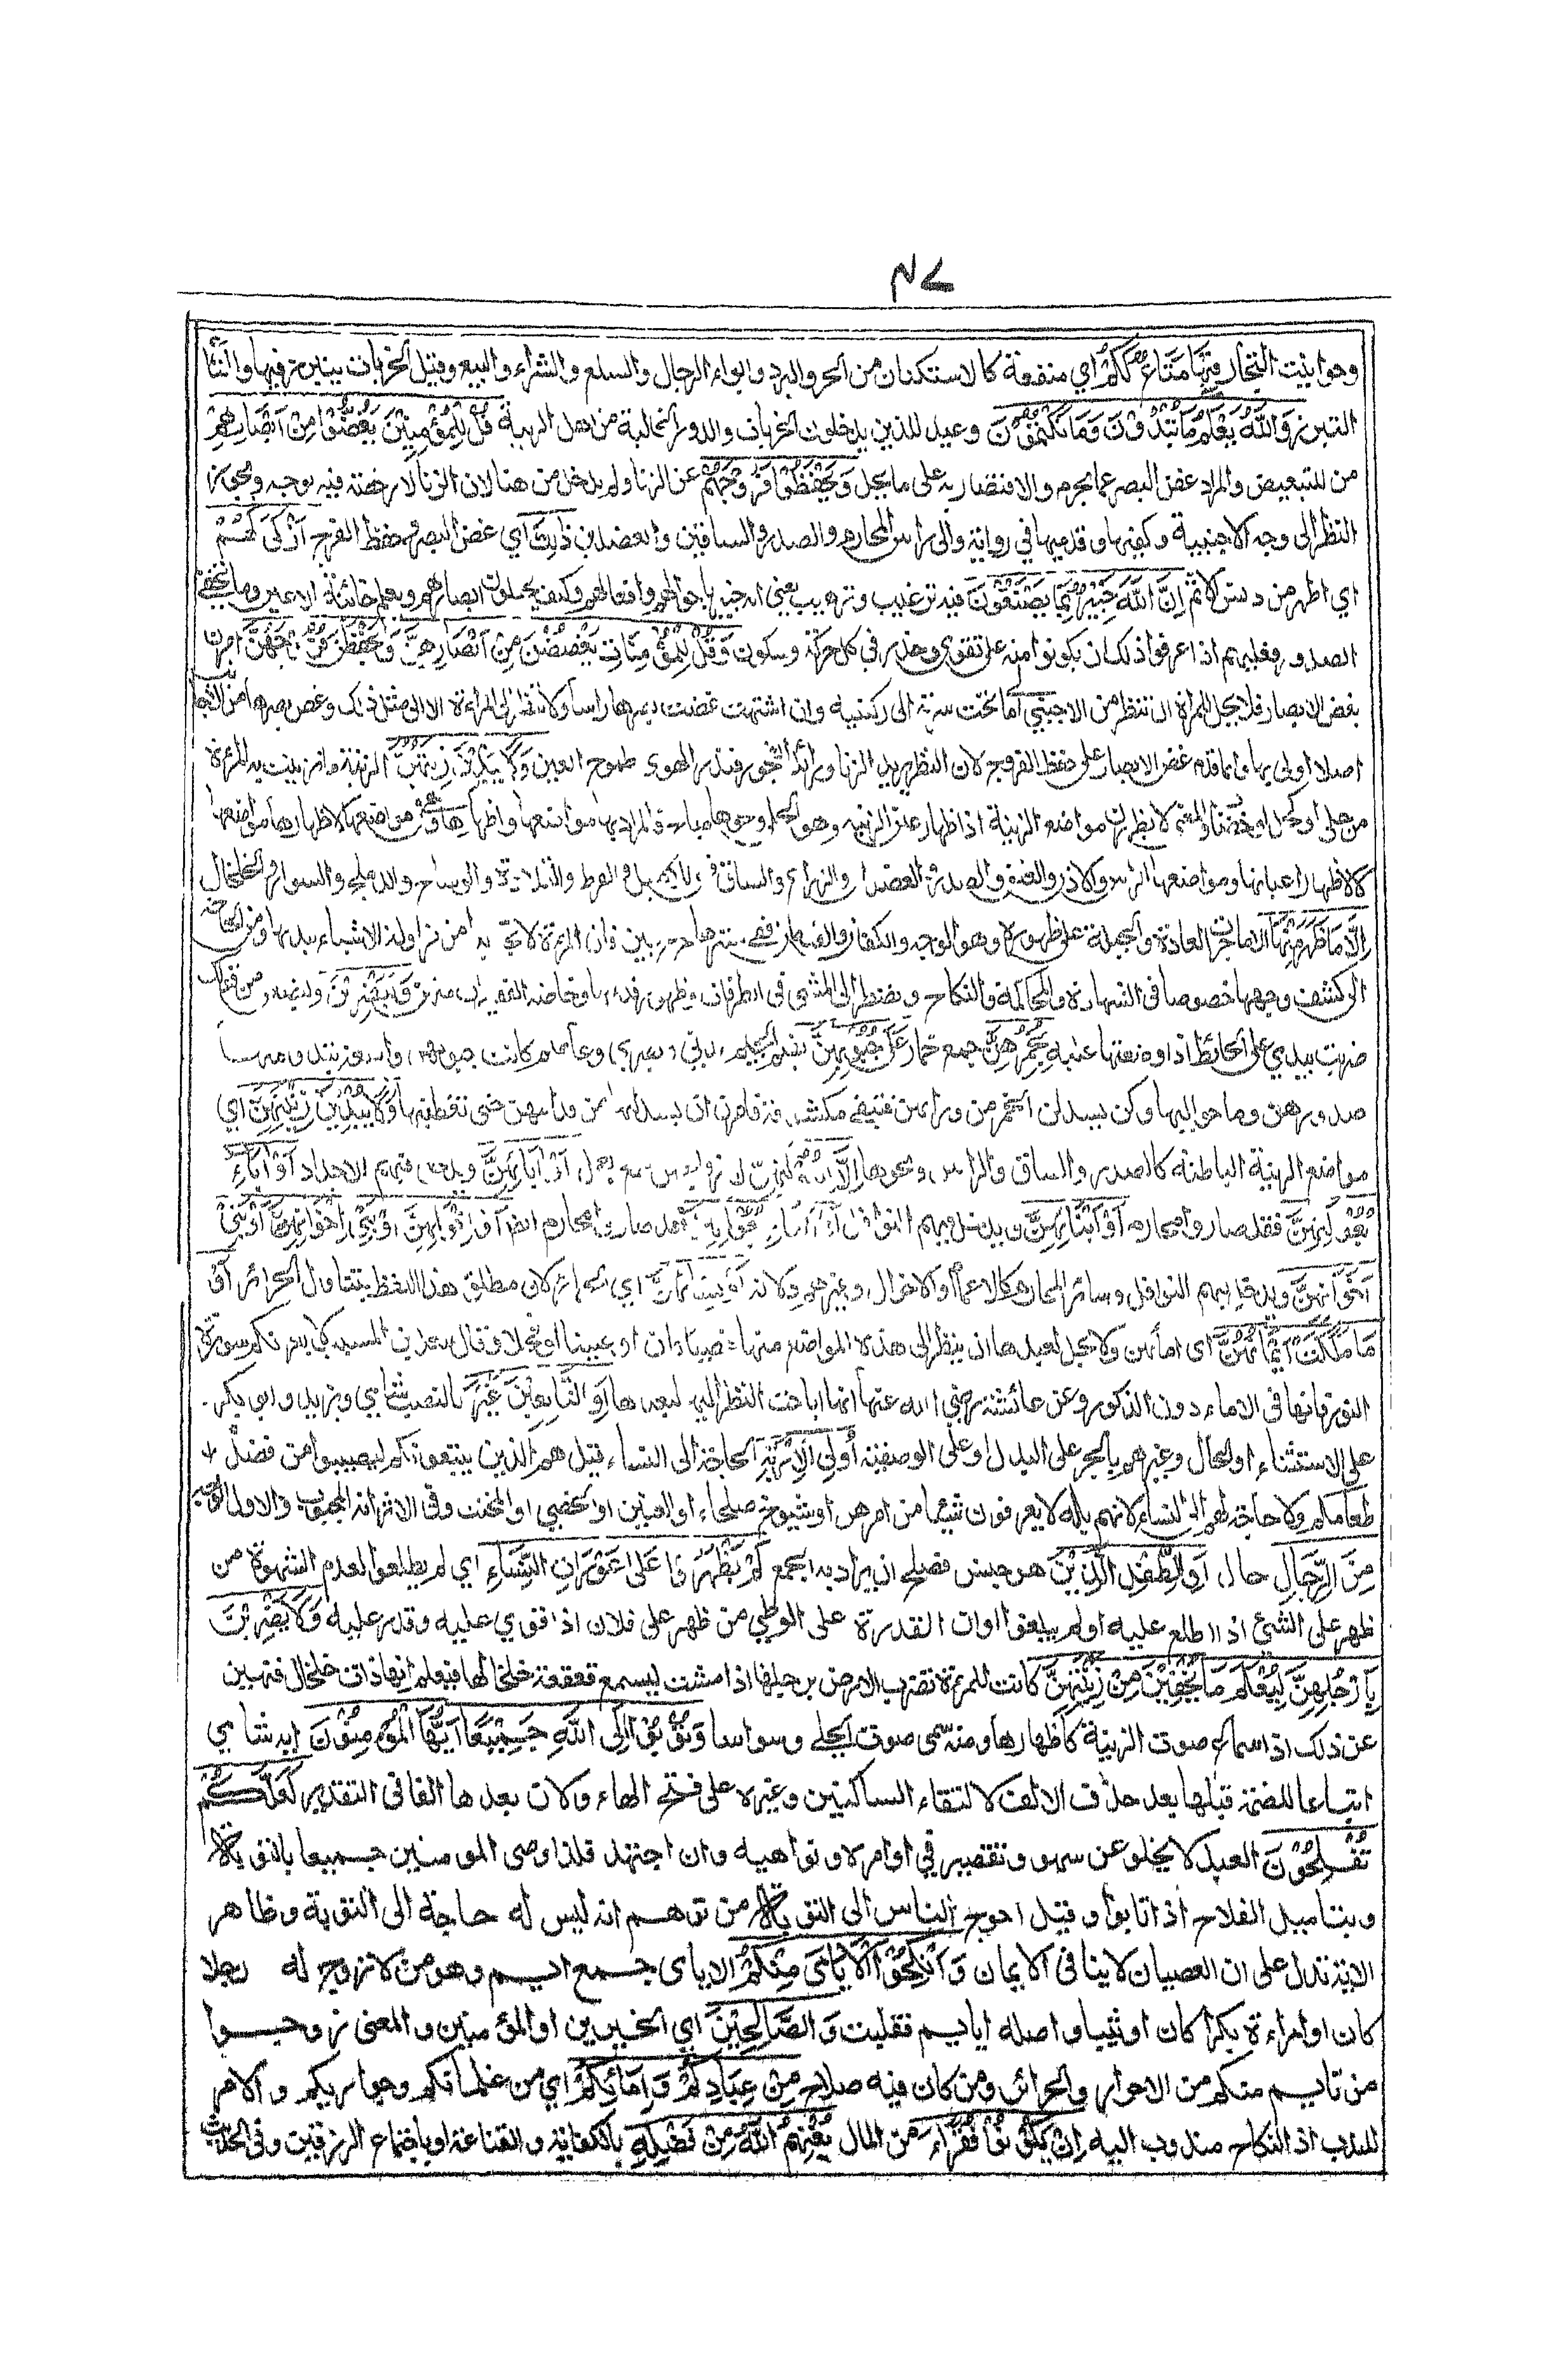 ٤٧
وحوانيت التجار فِيْهَا مَتَاعٌ لَّكُمْ اي منفعة كالاستكنان من الحر والبرد وايواء الرحال والسلع والشراء والبيع وقيل الخربات يتبرز فيها والمتاع
التبرز وَاللّٰهُ يَعْلَمُ مَا تُبْدُوْنَ وَمَا تَكْتُمُوْنَ وعيد للذين يدخلون الخربات والدور الخالية من اهل الريبة قُلْ لِّلْمُؤْمِنِيْنَ يَغُضُّوْا مِنْ اَبْصَارِهِمْ
من للتبعيض والمراد غض البصر عما يحرم والاقتصار به على ما يحل وَيَحْفَظُوْا فُرُوْجَهُمْ عن الزنا ولم يدخل من هنا لان الزنا لا رخصة فيه بوجه ويجوز
النظر الى وجه الاجنبية وكفيها وقدميها في رواية والى راس المحارم والصدر والساقين والعضدين ذٰلِكَ اي غض البصر وحفظ الفرج اَزْكٰى لَهُمْ
اي اطهر من دنس الاثم اِنَّ اللّٰهَ خَبِيْرٌۢ بِمَا يَصْنَعُوْنَ فيه ترغيب وترهيب يعني انه خبير باحوالهم وافعالهم وكيف يجيلون ابصارهم ويعلم خائنة الاعين وما تخفي
الصدور فعليهم اذا عرفوا ذلك ان يكونوا منه على تقوى وحذر في كل حركة وسكون وَقُلْ لِّلْمُؤْمِنَاتِ يَغْضُضْنَ مِنْ اَبْصَارِهِنَّ وَيَحْفَظْنَ فُرُوْجَهُنَّ امرن
بغض الابصار فلا يحل للمرأة ان تنظر من الاجنبي الى ما تحت سرته الى ركبتيه وان اشتهت غضت بصرها راسا ولا تنظر الى المراءة الا الى مثل ذلك وغض بصرها من الاجانب
اصلا اولى بها وانما قدم غض الابصار على حفظ الفروج لان النظر بريد الزنا ورائد الفجور فبذر الهوى طموح العين وَلَا يُبْدِيْنَ زِيْنَتَهُنَّ الزينة ما تزينت به المرءة
من حلي او كحل او خضاب والمعنى لا يظهرن مواضع الزينة اذ اظهار عين الزينة وهو الحلي ونحوها مباح فالمراد بها مواضعها
كالاظهار اعيانها ومواضعها الراس والاذن والعنق والصدر والعضدان والذراع والساق فهي للاكليل والقرط والقلادة والوشاح والدملج والسوار والخلخال
اِلَّا مَا ظَهَرَ مِنْهَا الا ما جرت العادة والجبلة على ظهوره وهو الوجه والكفان والقدمان ففي سترها حرج بين فان المرءة لا تجد بدا من مزاولة الاشياء بيديها ومن الحاجة
الى كشف وجهها خصوصا في الشهادة والمحاكمة والنكاح وتضطر الى المشي في الطرقات وظهور قدميها وخاصة الفقيرات منهن وَلْيَضْرِبْنَ وليضعن من قولك
ضربت بيدي على الحائط اذا وضعتها عليه بِخُمُرِهِنَّ جمع خمار عَلٰى جُيُوْبِهِنَّ بضم الجيم
صدورهن وما حواليها وكن يسدلن الخمر من ورائهن فتبقى مكشوفة فامرن ان يسدلنها من قدامهن حتى تغطينها وَلَا يُبْدِيْنَ زِيْنَتَهُنَّ اي
مواضع الزينة الباطنة كالصدر والساق والراس ونحوها اِلَّا لِبُعُوْلَتِهِنَّ لازواجهن جمع بعل اَوْ اٰبَائِهِنَّ ويدخل فيهم الاجداد اَوْ اٰبَاءِ
بُعُوْلَتِهِنَّ فقد صاروا محارم اَوْ اَبْنَائِهِنَّ ويدخل فيهم النوافل اَوْ اَبْنَاءِ بُعُوْلَتِهِنَّ فقد صاروا محارم ايضا اَوْ اِخْوَانِهِنَّ اَوْ بَنِيْ اِخْوَانِهِنَّ اَوْ بَنِيْ
اَخَوَاتِهِنَّ ويدخل فيهم النوافل وسائر المحارم كالاعمام والاخوال وغيرهم دلالة اَوْ نِسَائِهِنَّ اي الحرائر لان مطلق هذا اللفظ يتناول الحرائر اَوْ
مَا مَلَكَتْ اَيْمَانُهُنَّ اي امائهن ولا يحل لعبدها ان ينظر الى هذه المواضع منها خصيا كان او عنينا او فحلا وقال سعيد بن المسيب لا يغرنكم سورة
النور فانها في الاماء دون الذكور وعن عائشة رضي الله عنها انها اباحت النظر اليها لعبدها اَوِ التَّابِعِيْنَ غَيْرَ بالنصب شامي ويزيد وابو بكر
على الاستثناء او الحال وغيرهم بالجر على البدل او على الوصفية اُولِي الْاِرْبَةِ الحاجة الى النساء قيل هم الذين يتبعونكم ليصيبوا من فضل
طعامكم ولا حاجة لهم الى النساء لانهم بله لا يعرفون شيئا من امرهن او شيوخ صلحاء او العنين او الخصي او المخنث وفي الاثر انه المجبوب والاول الوجه
مِنَ الرِّجَالِ حال اَوِ الطِّفْلِ الَّذِيْنَ هو جنس فصلح ان يراد به الجمع لَمْ يَظْهَرُوْا عَلٰى عَوْرَاتِ النِّسَاءِ اي لم يطلعوا لعدم الشهوة من
ظهر على الشئ اذا اطلع عليه او لم يبلغوا اوان القدرة على الوطي من ظهر على فلان اذا قوي عليه وقدر عليه وَلَا يَضْرِبْنَ
بِاَرْجُلِهِنَّ لِيُعْلَمَ مَا يُخْفِيْنَ مِنْ زِيْنَتِهِنَّ كانت المرءة تضرب الارض برجليها اذا مشت ليسمع قعقعة خلخالها فيعلم انها ذات خلخال فنهين
عن ذلك اذ اسماع صوت الزينة كاظهارها ومنه سمى صوت الحلي وسواسا وَتُوْبُوْا اِلَى اللّٰهِ جَمِيْعًا اَيُّهَ الْمُؤْمِنُوْنَ ايه شامي
اتباعا للضمة قبلها بعد حذف الالف لالتقاء الساكنين وغيره على فتح الهاء ولان بعدها الفا في التقدير لَعَلَّكُمْ
تُفْلِحُوْنَ العبد لا يخلو عن سهو وتقصير في اوامره ونواهيه وان اجتهد فلذا وصى المومنين جميعا بالتوبة
وبتاميل الفلاح اذا تابوا وقيل احوج الناس الى التوبة من توهم انه ليس له حاجة الى التوبة وظاهر
الاية تدل على ان العصيان لا ينافي الايمان وَاَنْكِحُوا الْاَيَامٰى مِنْكُمْ الايامى جمع ايم وهو من لا زوج له رجلا
كان او امراءة بكرا كان او ثيبا واصله ايايم فقلبت وَالصَّالِحِيْنَ اي الخيرين او المؤمنين والمعنى زوجوا
من تايم منكم من الاحرار والحرائر ومن كان فيه صلاح مِنْ عِبَادِكُمْ وَاِمَائِكُمْ اي من غلمانكم وجواريكم والامر
للندب اذ النكاح مندوب اليه اِنْ يَّكُوْنُوْا فُقَرَاءَ من المال يُغْنِهِمُ اللّٰهُ مِنْ فَضْلِهِ بالكفاية والقناعة او باجتماع الرزقين وفي الحديث